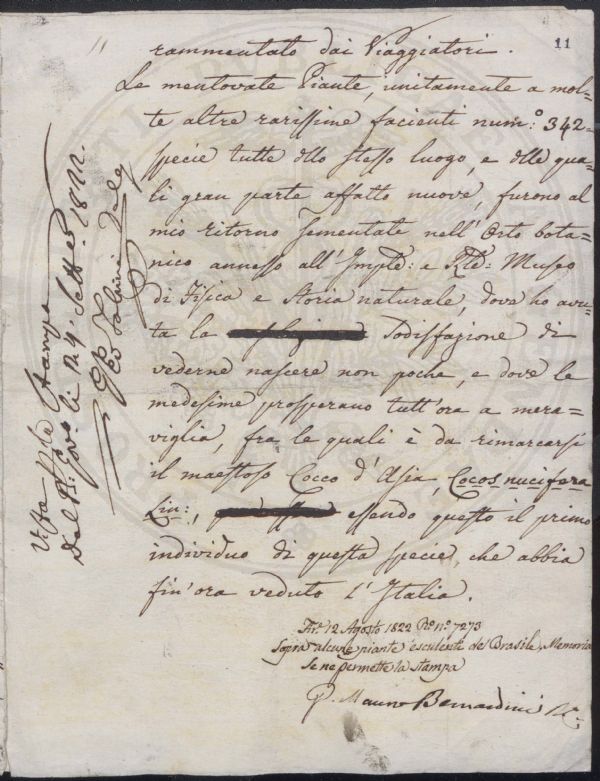 11
11
rammentato dai Viaggiatori.
Le mentovate Piante, unitamente a mol-
te altre rarissime facienti num:° 342-
specie tutte dllo stesso luogo, e dlle qua-
li gran parte affatto nuove, furono al
mio ritorno sementate nell' Orto bota-
nico annesso all' Imple: e Rle: Museo
di Fisica e Storia naturale, dove ho avu-
ta la sodisfazione di
vederne nascere non poche, e dove le
medesime prosperano tutt'ora a mera-
viglia, fra le quali è da rimarcarsi
il maestoso Cocco d'Asia, Cocos nucifera
Lin:, essendo questo il primo
individuo di questa specie, che abbia
fin'ora veduto l'Italia.
12 Agosto 1822 Ro. n° 7273
Sopra alcune piante esculente del Brasile, Memoria
Se ne permette la stampa
P. Mauro Bernardini
Vista p la Stampa
Dal R. Govo li 24. Sette. 1822.